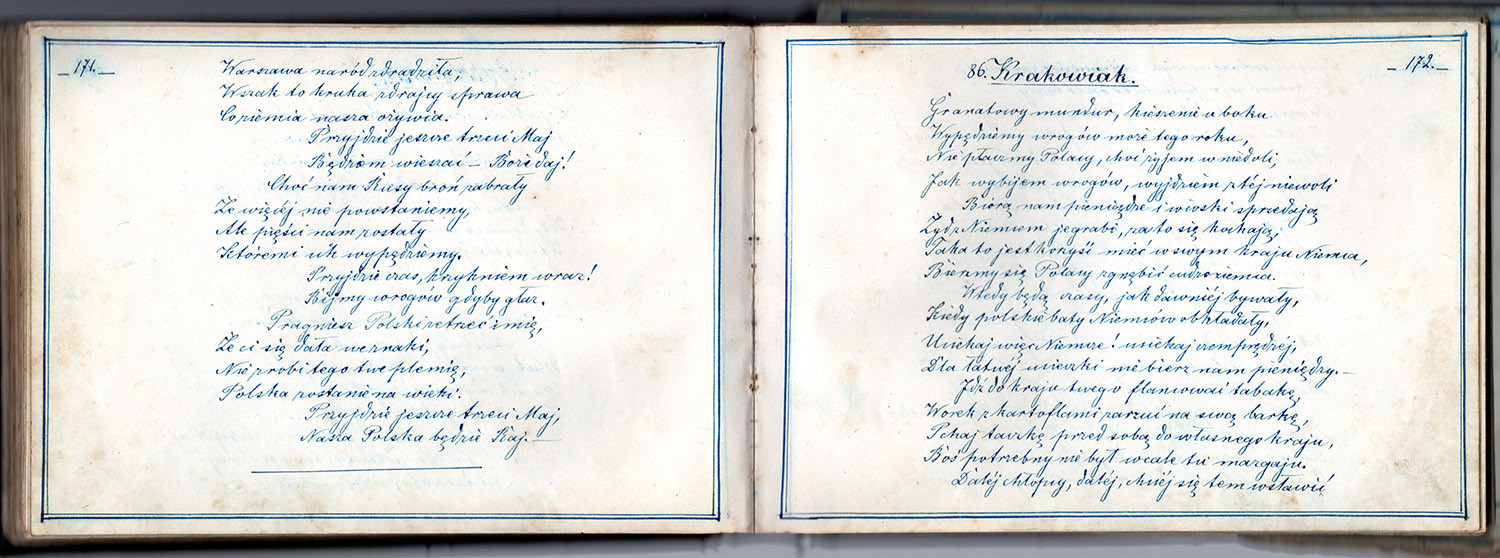 _171._
Warszawa naród zdradziła,
Wszak to kruka zdrajcy sprawa
Co ziemia nasza ożywia.
Przyjdzie jeszcze trzeci Maj
Będziem wieszać – Boże daj!
Choć nam Rusy broń zabrały
Że więcéj nie powstaniemy,
Ale pięści nam zostały
Któremi ich wypędziemy.
Przyjdzie czas, krzykniem wraz!
Bijmy wrogów gdyby głaz.
Pragniesz Polski zetrzeć imię,
Że ci się dała we znaki,
Nie zrobi tego twe plemię,
Polska zostanie na wieki.
Przyjdzie jeszcze trzeci Maj,
Nasza Polska będzie Raj. –
_172._
86. Krakowiak.
Granatowy mundur, kieszenie u boku
Wypędziemy wrogów może tego roku,
Nie płaczmy Polacy, choć żyjem w niedoli,
Jak wybijem wrogów, wyjdziem z téj niewoli
Biorą nam pieniądze i wioski sprzedają
Żyd z Niemcem je grabi, za to się kochają;
Taka to jest korzyść mieć w swym kraju Niemca,
Bierzmy się Polacy zgnębić cudzoziemca.
Wtedy będą czasy, jak dawniéj bywały,
Kiedy polskie baty Niemców okładały,
Uciekaj więc Niemcze! uciekaj czemprędzéj,
Dla łatwéj ucieczki nie bierz nam pieniędzy. –
Idź do kraju twego flancować tabakę,
Worek z kartoflami zarzuć na swą barkę,
Pchaj taczkę przed sobą do własnego kraju,
Boś potrzebny nie był wcale tu mazgaju.
Daléj chłopcy, daléj, chciej się tem wsławić